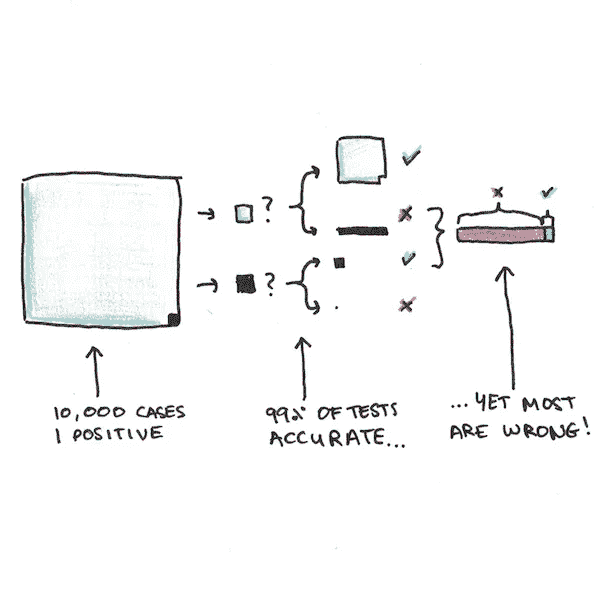 ? ✓
✗ ✗ ✓
? ✓
✗
10,000 CASES
1 POSITIVE
99% OF TESTS
ACCURATE...
...YET MOST
ARE WRONG!